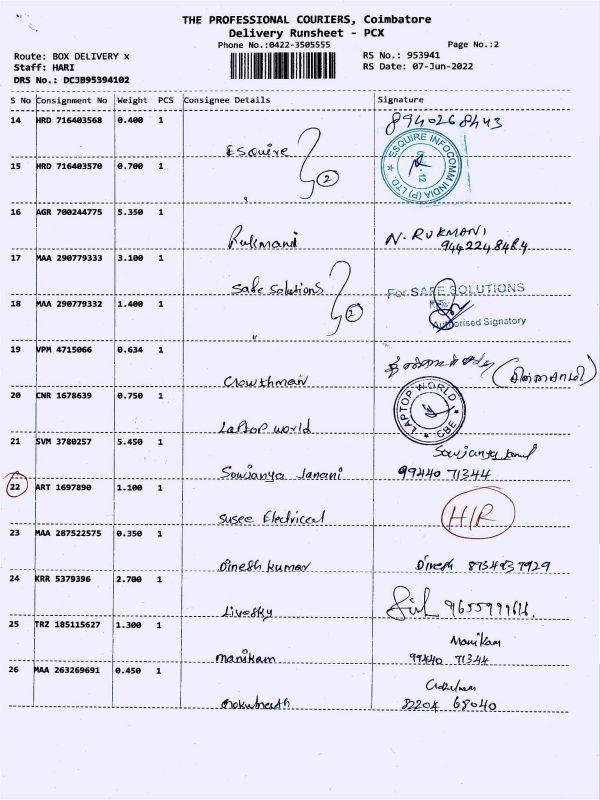 THE PROFESSIONAL COURIERS, Coimbatore
Delivery Runsheet - PCX
Phone No.:0422-3505555
Page No.:2
Route: BOX DELIVERY x
RS No.: 953941
Staff: HARI
RS Date: 07-Jun-2022
DRS No.: DCJB95394102
S No Consignment No Weight PCS Consignee Details Signature
14 HRD 716403568 0.400 1 8940268443
Esquire
ESQUIRE INFOCOMM INDIA (P) LTD.
15 HRD 716403570 0.700 1
2
"
16 AGR 700244775 5.350 1
Rukmani N. RUKMANI
9442248484
17 MAA 290779333 3.100 1
Safe Solutions For SAFE SOLUTIONS
18 MAA 290779332 1.400 1
2
Authorised Signatory
"
19 VPM 4715066 0.634 1
20 CNR 1678639 0.750 1
LAPTOP WORLD
CBE
Laptop world
21 SVM 3780257 5.450 1
Sowjanya Janani
99440 71344
22 ART 1697890 1.100 1
Susee Electrical H/R
23 MAA 287522575 0.350 1
Dinesh kumar Dinesh
24 KRR 5379396 2.700 1
Livesky
25 TRZ 185115627 1.300 1
Manikam
manikam 99440 71344
26 MAA 263269691 0.450 1
68040